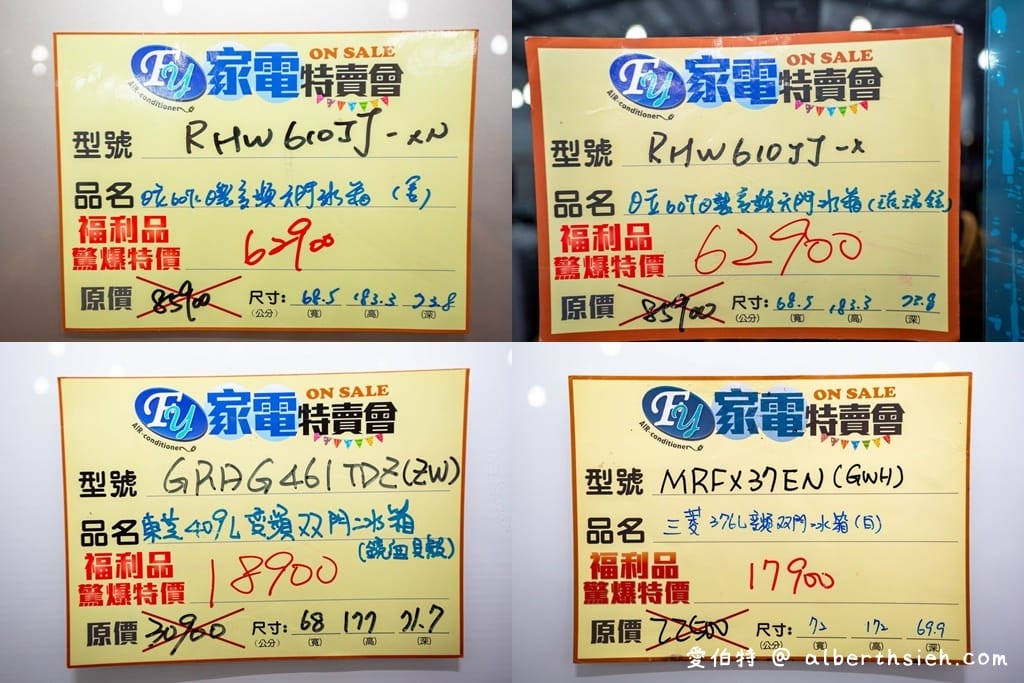 ON SALE
Fy 家電特賣會
AIR-conditioner
型號 RHW610JJ-XN
品名 日立607L日製變頻六門冰箱(
福利品
驚爆特價 62900
原價 85900 尺寸: 68.5 183.3 73.8
(公分) (寬) (高) (深)
ON SALE
Fy 家電特賣會
AIR-conditioner
型號 RHW610JJ-X
品名 日立607日製變頻六門冰箱(琉璃鏡)
福利品
驚爆特價 62900
原價 85900 尺寸: 68.5 183.3 73.8
(公分) (寬) (高) (深)
ON SALE
Fy 家電特賣會
AIR-conditioner
型號 GRAG461TDZ(ZW)
品名 東芝409L變頻双門冰箱
(鏡面貝殼)
福利品
驚爆特價 18900
原價 30900 尺寸: 68 177 71.7
(公分) (寬) (高) (深)
ON SALE
Fy 家電特賣會
AIR-conditioner
型號 MRFX37EN(GWH)
品名 三菱376L變頻双門冰箱(白)
福利品
驚爆特價 17900
原價 22500 尺寸: 72 172 69.9
(公分) (寬) (高) (深)
愛伯特 @ alberthsieh.com